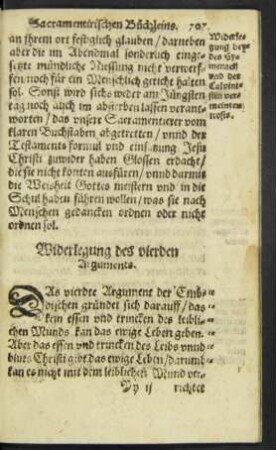 Sacramentirischen Büchleins. 707.
an ihrem ort festiglich glauben / darneben
aber die im Abendmal sonderlich einge-
setzte mündliche Niessung nicht verwerf-
fen noch für ein Menschlich geticht halten
sol. Sonst wird sichs weder am Jüngsten
tag noch auch im absterben lassen verant-
worten / das vnsere Sacramentierer vom
klaren Buchstaben abgetretten / vnnd der
Testaments formul vnd einsatzung Jesu
Christi zuwider haben Glossen erdacht /
die sie nicht konten ausfüren / vnnd darmit
die Weisheit Gottes meistern vnd in die
Schul haben führen wollen / was sie nach
Menschen gedancken ordnen oder nicht
ordnen sol.
Widerle-
gung bey-
der
vnd der
Calvini-
sten ver-
meinten
Widerlegung des vierden
Arguments.
DAs vierdte Argument der Emb-
dischen gründet sich darauff / das
kein essen vnd trincken des leibli-
chen Munds kan das ewige Leben geben.
Aber das essen vnd trincken des Leibs vnnd
bluts Christi gibt das ewige Leben / darumb
kan es nicht mit dem leiblichen Mund ver-
Yy ij richtet